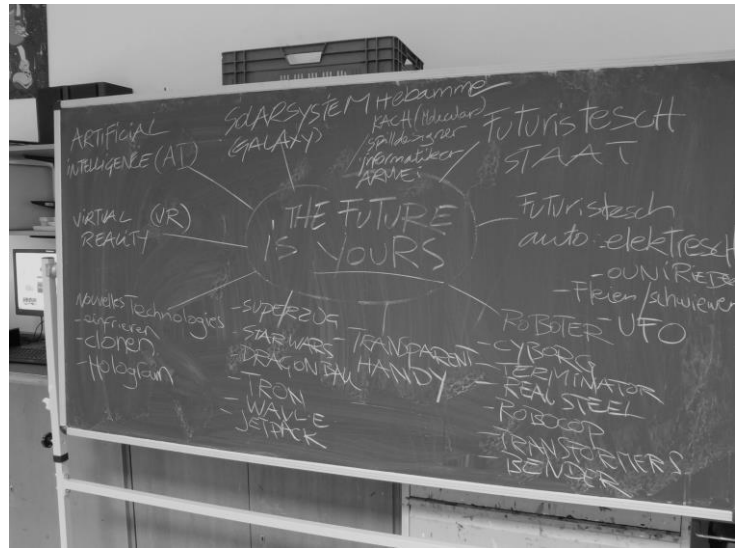 ARTIFICIAL
INTELLIGENCE (AI)
SOLARSYSTEM
(GALAXY)
Hebamme
KACH (Molecular)
spilldesigner
informatiker
ARMEI
FUTURISTESCH
STAAT
VIRTUAL (VR)
REALITY
THE FUTURE
iS YOURS
FUTURISTESCH
auto: elektresch
- OUNI RIEDER
- Fleien/schwiewen
- UFO
Nouvelles Technologies
- einfrieren
- clonen
- Hologram
- SUPERZUG
- STAR WARS
- DRAGON BALL
- TRON
- WALL-E
- JETPACK
- TRANSPARENT
HANDY
ROBOTER
- CYBORG
- TERMINATOR
- REAL STEEL
- ROBOCOP
- TRANSFORMERS
- BENDER